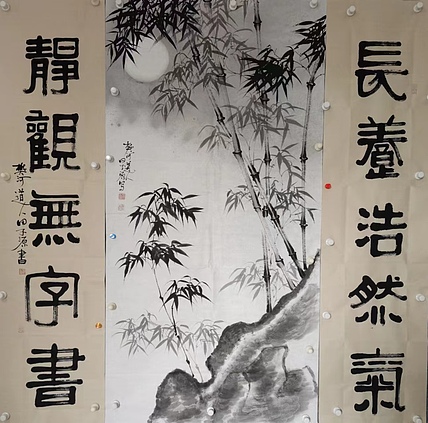 長養浩然氣
靜觀無字書
道人田子源書